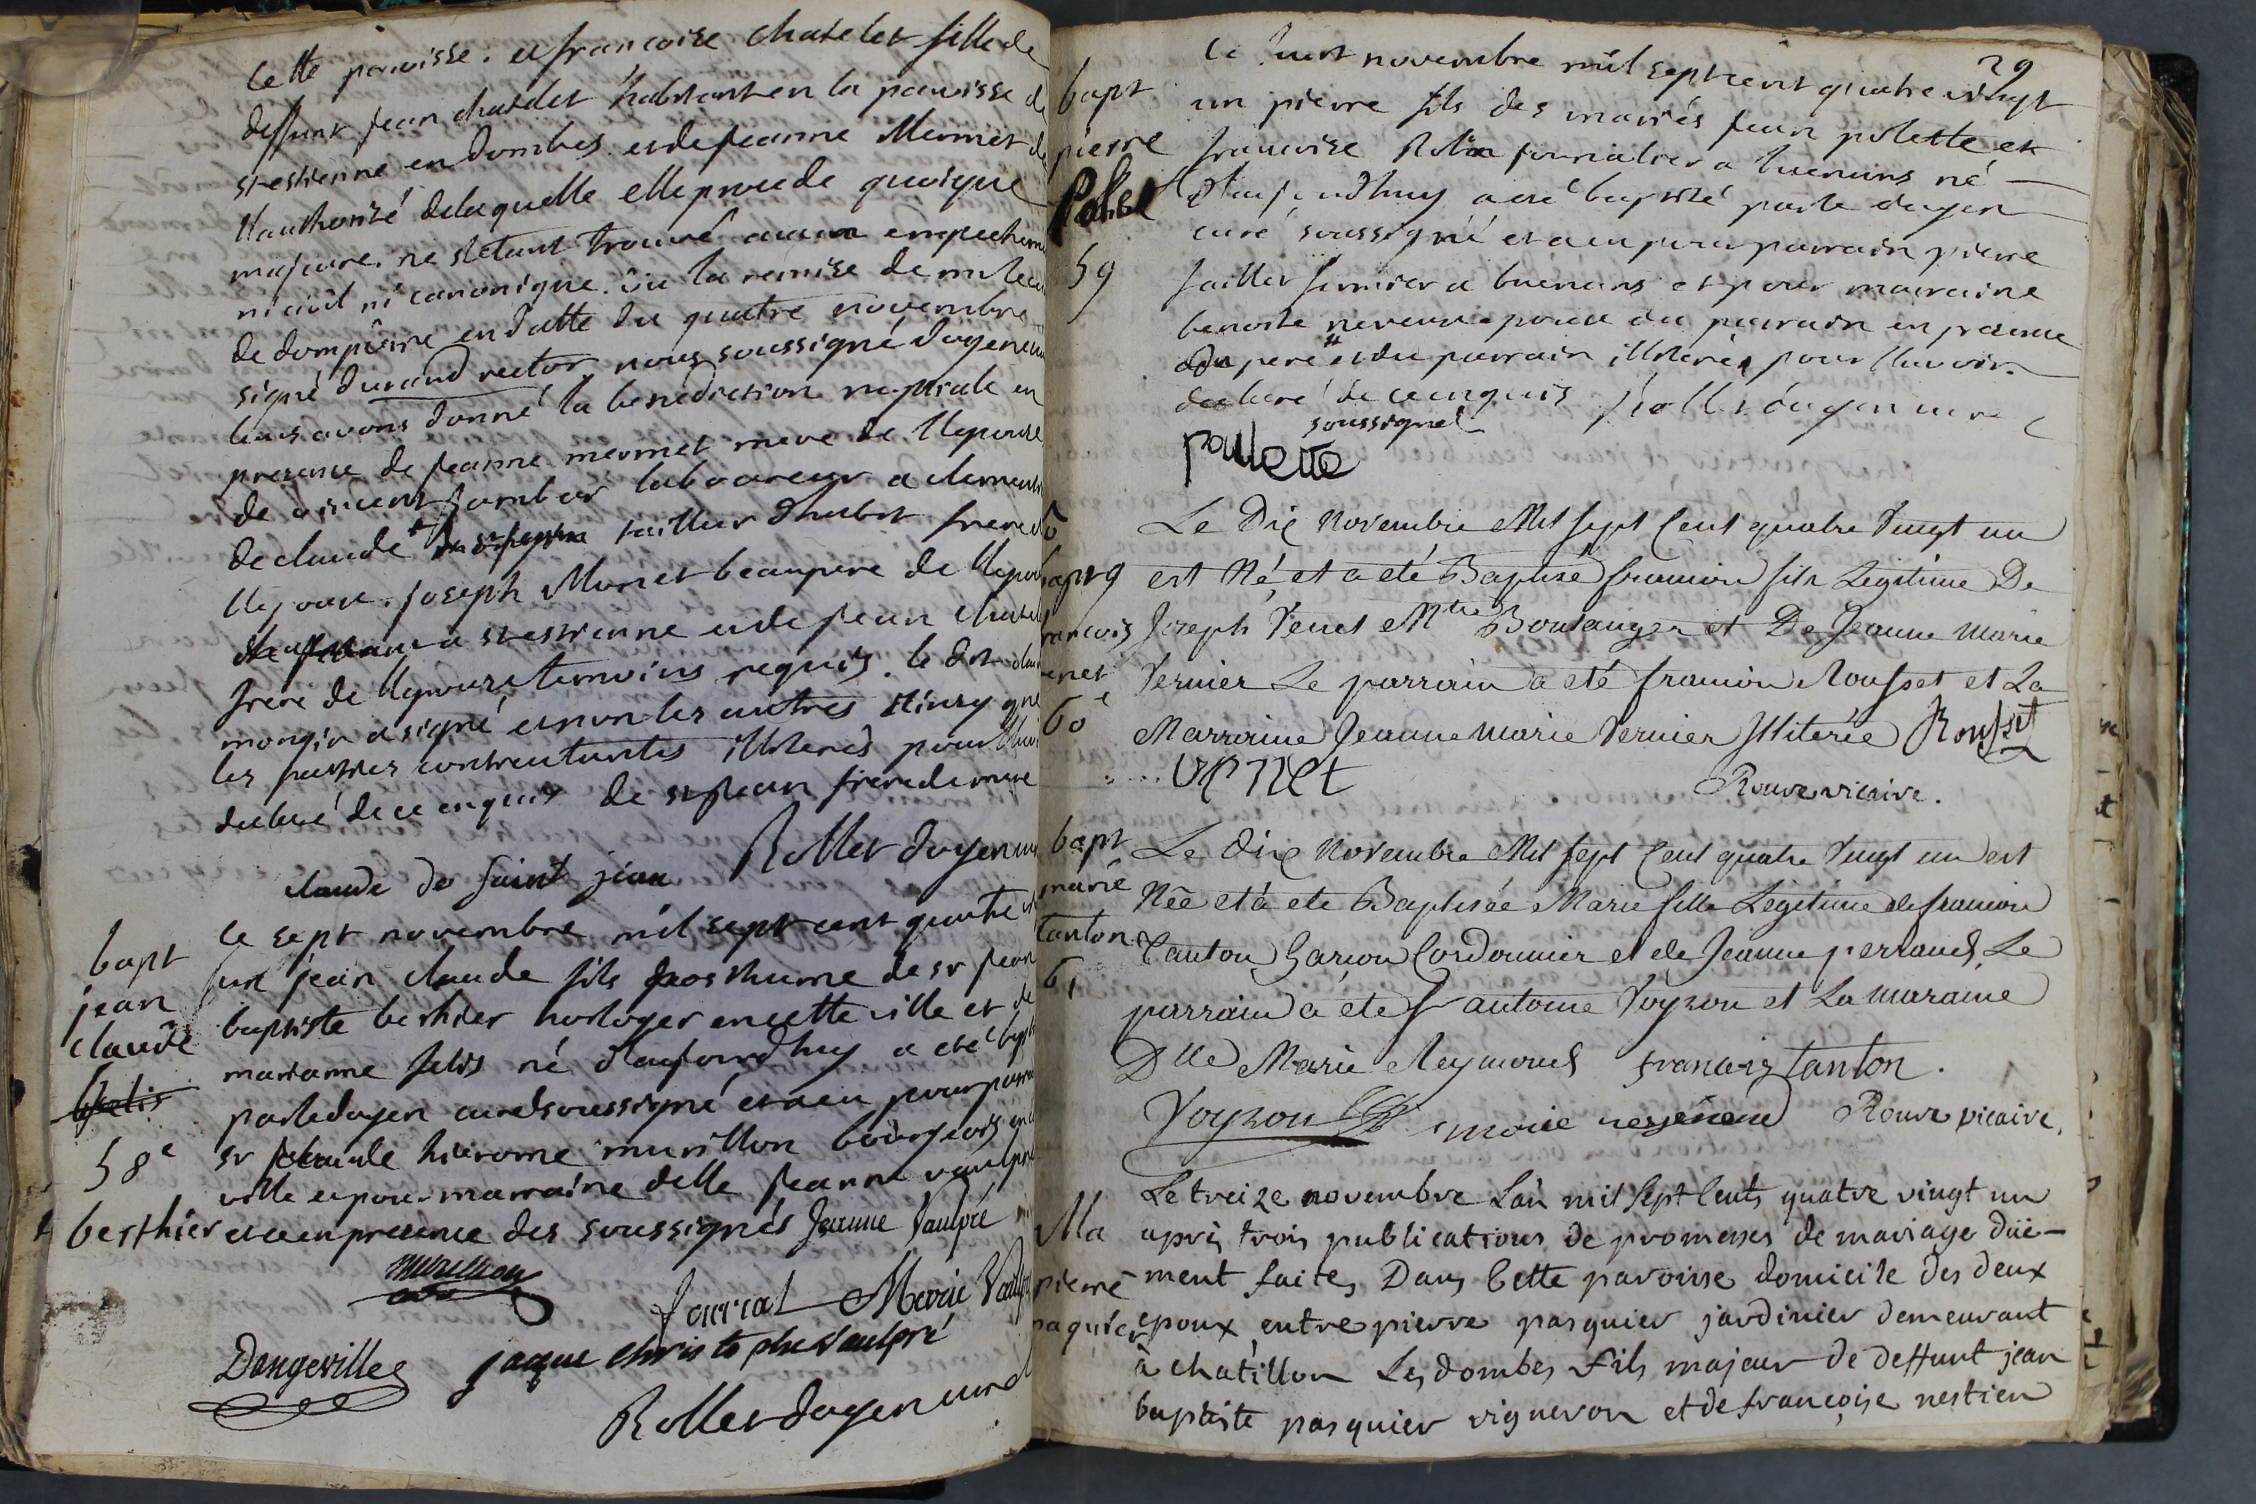 cette paroisse. et francoise chatelet fille de
deffunt jean chatelet habitant en la paroisse de
st estienne en dombes et de jeanne Mermet de
l'authorité de laquelle elle procede quoique
majeure. ne s'etant trouvé aucun empechem
ni civil ni canonique. vu la remise de
de dompierre en datte du quatre novembre
signé durand rector, nous soussigné doyen
leurs avons donné la benediction nuptiale en
presence de jeanne mermet mere de l'epouse
de vincent laboureur a
de claude tailleur d'habit frere de
l'epoux. joseph beaupere de l'epoux
a st estienne et de jean chatelet
frere de l'epouse temoins requis. le dit
mongin a signé et non les autres ainsy que
les parties contractantes illiterés pour l'avoir
declaré de ce enquis de st jean frere de mere
Rollet doyen curé
claude de saint jean
bapt
jean
claude
58e
berthier
le sept novembre mil sept cent quatre vt
un jean claude fils posthume de sr jean
baptiste berthier horloger en cette ville et de
marianne felis né d'aujourdhuy a eté bapt
par le doyen curé soussigné et a eu pour parra
sr claude hierome murillon bourgeois en
ville et pour marraine delle jeanne vaulpré
et a en presence des soussignés Jeanne Vaulpré
murillion
Marie Vaulpré
Dangeville
jaque christophe Vaulpré
Rollet doyen curé
29
bapt
pierre
59
le huit novembre mil sept cent quatre vingt
un pierre fils des mariés jean polette et
francoise Robin journalier a buenans né
d'aujourdhuy a eté baptisé par le doyen
curé soussigné et a eu pour parrain pierre
fermier a buenans et pour marraine
benoite epouse du parrain en presence
du pere et du parrain illiterés pour l'avoir
declaré de ce enquis Rollet doyen curé
soussigné
paullette
bapt
francois
venet
60e
Le Dix Novembre Mil sept Cent quatre Vingt un
est Né, et a eté Baptisé francoin fils Legitime De
Joseph Venet Mtre Boulanger et De Jeanne Marie
Vernier Le parrain a eté francoin Rousset et La
Marraine Jeanne Marie Vernier Illiterée Rousset
venet
Rouve vicaire.
bapt
marie
tanton
61
Le Dix Novembre Mil sept Cent quatre Vingt un est
Née et a eté Baptisée Marie fille Legitime de francoin
Tanton Garcon Cordonnier et de Jeanne perraud, Le
parrain a eté Sr antoine Voyron et La maraine
Dlle Marie Reymond francois tanton.
Voyron marie reymond Rouve vicaire.
Ma
pierre
paquier
Le treize novembre L'an mil sept Cents quatre vingt un
après trois publications de promesses de mariage düe-
ment faites, Dans Cette paroisse domicile des deux
epoux entre pierre pasquier jardinier demeurant
à chatillon Les dombes fils majeur de deffunt jean
baptiste pasquier vigneron et de françoise nestien